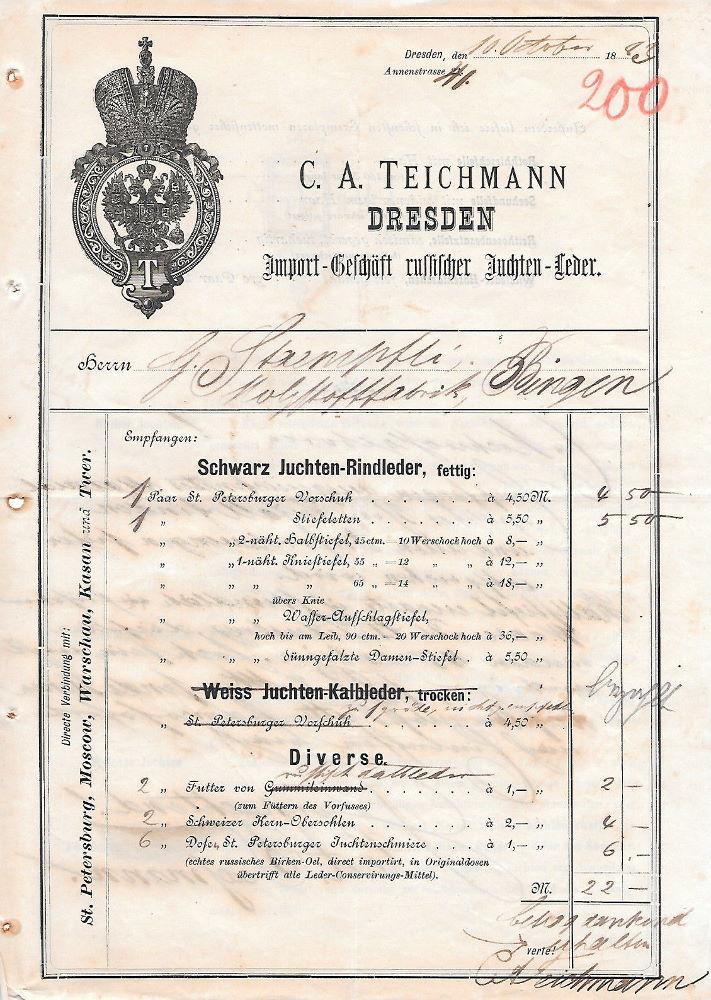 Dresden, den 10. October 1893
Annenstrasse 41.
200
C. A. TEICHMANN
DRESDEN
Import-Geschäft russischer Juchten-Leder.
T
Herrn G. Staempfli,
Holzstofffabrik, Bingen
Directe Verbindung mit:
St. Petersburg, Moscow, Warschau, Kasan und Twer.
Empfangen:
Schwarz Juchten-Rindleder, fettig:
1 Paar St. Petersburger Vorschuh . . . . . . . à 4,50 M. 4 50
1 „ Stiefeletten . . . . . . . à 5,50 „ 5 50
„ „ 2-näht. Halbstiefel, 45 ctm. = 10 Werschock hoch à 8,— „
„ „ 1-näht. Kniestiefel, 55 „ = 12 „ „ à 12,— „
„ „ „ „ 65 „ = 14 „ „ à 18,— „
übers Knie
„ „ „ Wasser-Aufschlagstiefel,
hoch bis am Leib, 90 ctm. = 20 Werschock hoch à 36,— „
„ „ „ dünngefalzte Damen-Stiefel . à 5,50 „
Weiss Juchten-Kalbleder, trocken:
„ St. Petersburger Vorschuh à 4,50 „
bezahlt
Diverse.
2 „ Futter von Gummileinwand . . . . . . à 1,— „ 2 —
(zum Füttern des Vorfusses)
2 „ Schweizer Kern-Obersohlen . . . . . . à 2,— „ 4 —
6 „ Dosen St. Petersburger Juchtenschmiere . . . . à 1,— „ 6 . —
(echtes russisches Birken-Oel, direct importirt, in Originaldosen
übertrifft alle Leder-Conservirungs-Mittel).
M. 22 —
Betrag dankend
erhalten
verte!
CATeichmann